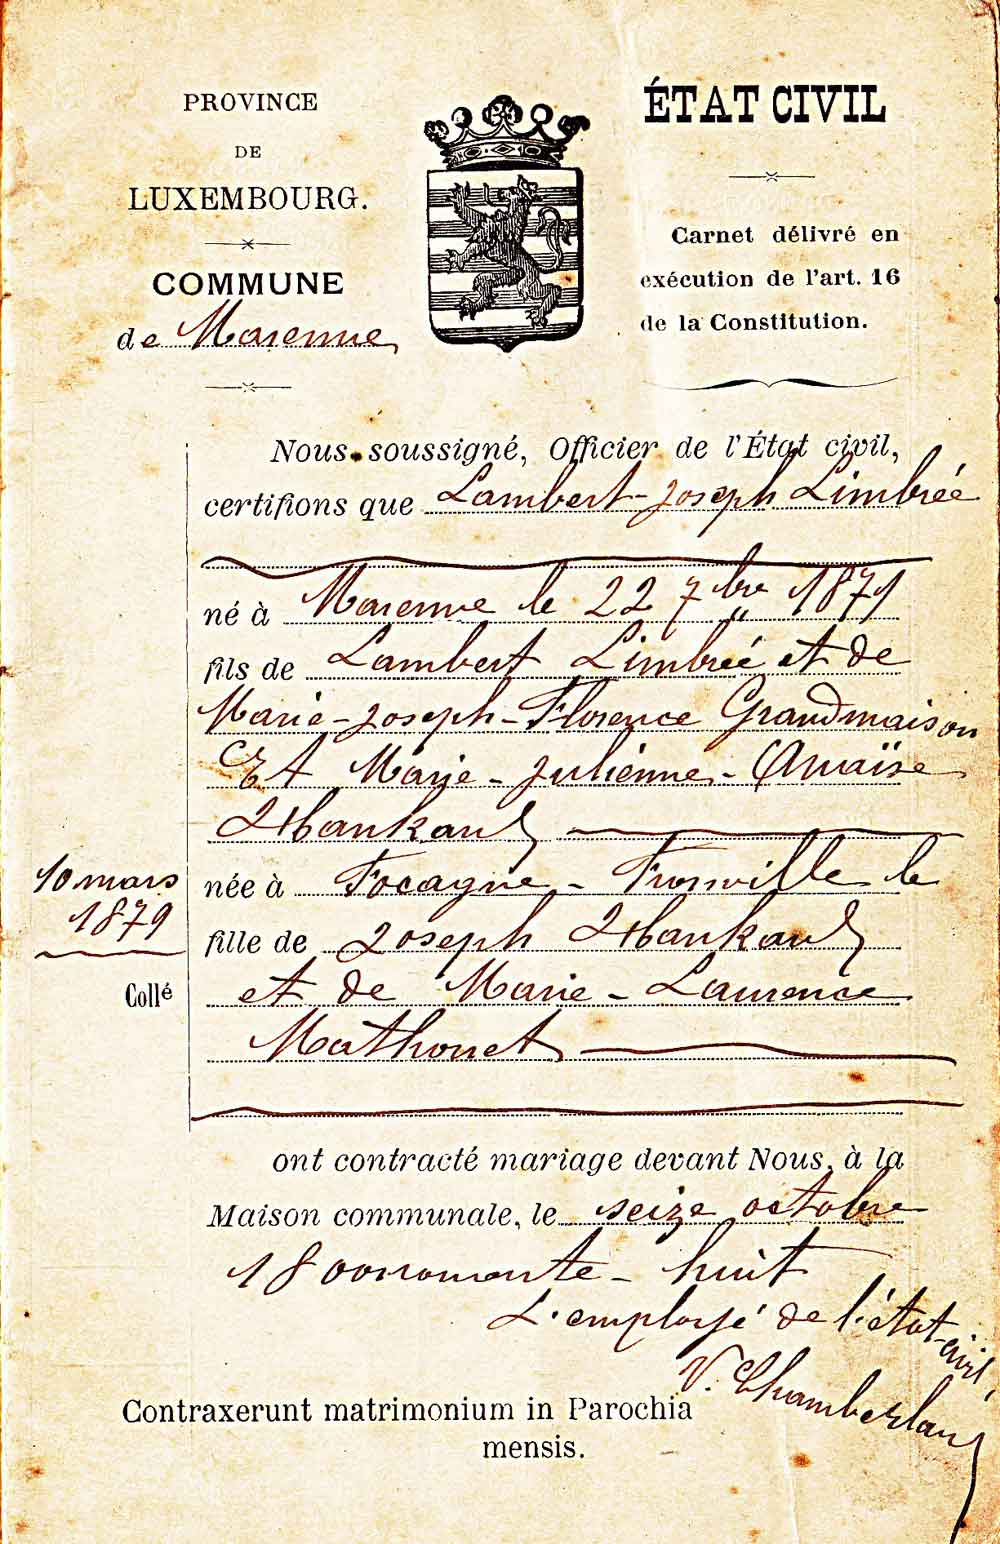 PROVINCE
DE
LUXEMBOURG.
COMMUNE
de Marenne
ÉTAT CIVIL
Carnet délivré en
exécution de l'art. 16
de la Constitution.
Nous soussigné, Officier de l'État civil,
certifions que Lambert-Joseph Limbrée
né à Marenne le 22 7bre 1871
fils de Lambert Limbrée et de
Marie-Joseph-Florence Grandmaison
Et Marie-Julienne-Anaïse
Hankard
10 mars
1879
née à Focagne-Fronville le
fille de Joseph Hankard
Collé
et de Marie-Laurence
Mathonet
ont contracté mariage devant Nous, à la
Maison communale, le seize octobre
1800nonante-huit
L'employé de l'état-civil,
V. Chamberland
Contraxerunt matrimonium in Parochia
mensis.